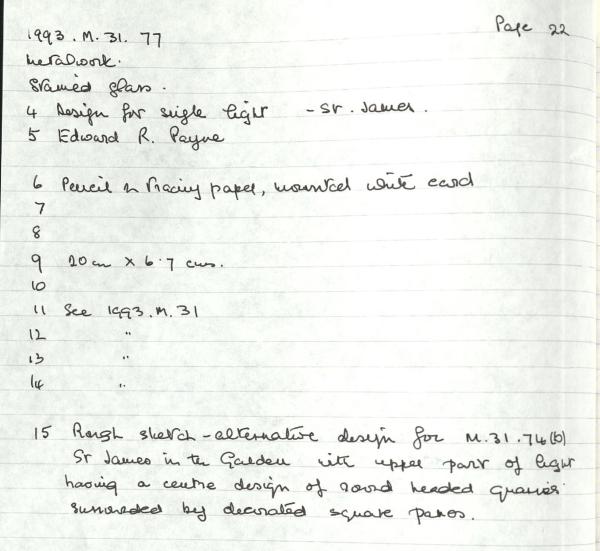 Page 22
1993.M.31.77
Metalwork.
Stained glass.
4 Design for single light - St. James.
5 Edward R. Payne
6 Pencil on tracing paper, mounted white card
7
8
9 20cm x 6.7 cms.
10
11 See 1993.M.31
12 "
13 "
14 "
15 Rough sketch - alternative design for M.31.74(b)
St James in the Garden with upper part of light
having a centre design of round headed quarries
surrounded by decorated square panes.